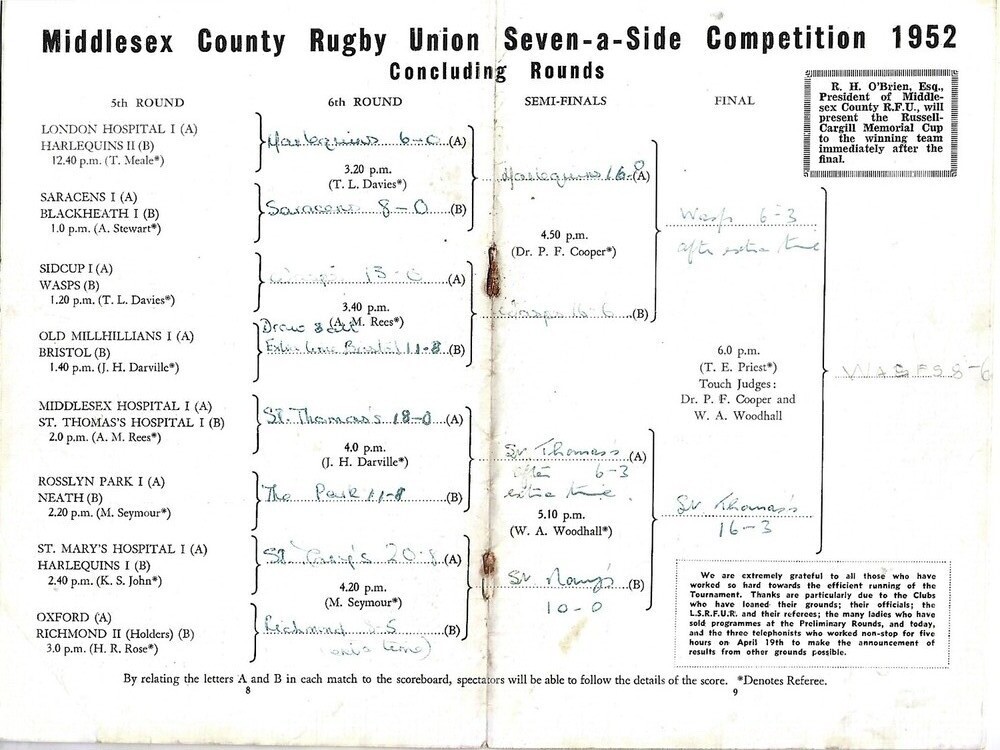 Middlesex County Rugby Union Seven-a-Side Competition 1952
Concluding Rounds
R. H. O'Brien, Esq.,
President of Middle-
sex County R.F.U., will
present the Russell-
Cargill Memorial Cup
to the winning team
immediately after the
final.
5th ROUND
LONDON HOSPITAL I (A)
HARLEQUINS II (B)
12.40 p.m. (T. Meale*)
SARACENS I (A)
BLACKHEATH I (B)
1.0 p.m. (A. Stewart*)
SIDCUP I (A)
WASPS (B)
1.20 p.m. (T. L. Davies*)
OLD MILLHILLIANS I (A)
BRISTOL (B)
1.40 p.m. (J. H. Darville*)
MIDDLESEX HOSPITAL I (A)
ST. THOMAS'S HOSPITAL I (B)
2.0 p.m. (A. M. Rees*)
ROSSLYN PARK I (A)
NEATH (B)
2.20 p.m. (M. Seymour*)
ST. MARY'S HOSPITAL I (A)
HARLEQUINS I (B)
2.40 p.m. (K. S. John*)
OXFORD (A)
RICHMOND II (Holders) (B)
3.0 p.m. (H. R. Rose*)
6th ROUND
Harlequins 6-0 (A)
3.20 p.m.
(T. L. Davies*)
Saracens 8-0 (B)
Wasps 15-0 (A)
3.40 p.m.
(A. M. Rees*)
Draw 8 all
Extra time Bristol 11-8 (B)
St. Thomas's 18-0 (A)
4.0 p.m.
(J. H. Darville*)
The Park 11-8 (B)
St. Mary's 20- (A)
4.20 p.m.
(M. Seymour*)
Richmond -5 (B)
time)
SEMI-FINALS
Harlequins 16-8 (A)
4.50 p.m.
(Dr. P. F. Cooper*)
Wasps 16-6 (B)
St Thomas's (A)
after 6-3
extra time.
5.10 p.m.
(W. A. Woodhall*)
St Mary's (B)
10-0
FINAL
Wasps 6-3
after extra time
6.0 p.m.
(T. E. Priest*)
Touch Judges:
Dr. P. F. Cooper and
W. A. Woodhall
St Thomas's
16-3
WASPS 8-6
We are extremely grateful to all those who have
worked so hard towards the efficient running of the
Tournament. Thanks are particularly due to the Clubs
who have loaned their grounds; their officials; the
L.S.R.F.U.R. and their referees; the many ladies who have
sold programmes at the Preliminary Rounds, and today,
and the three telephonists who worked non-stop for five
hours on April 19th to make the announcement of
results from other grounds possible.
By relating the letters A and B in each match to the scoreboard, spectators will be able to follow the details of the score. *Denotes Referee.
8
9